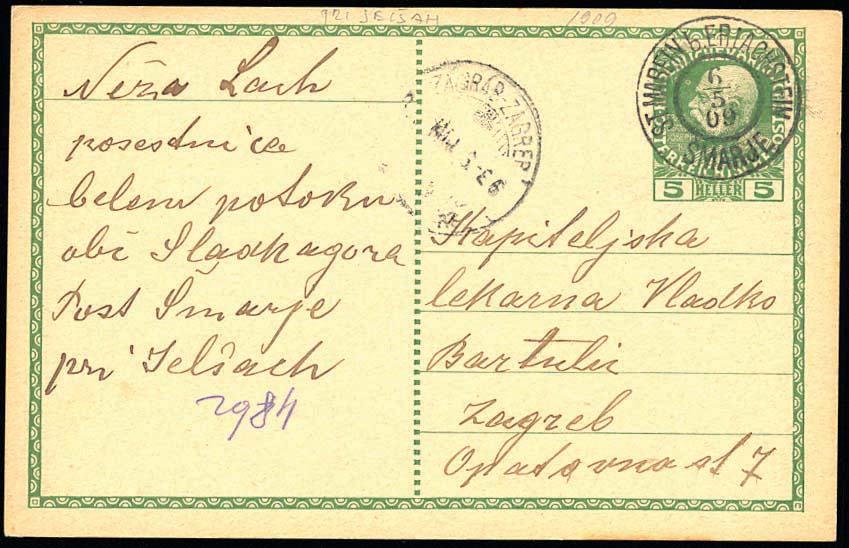 PRI JELŠAH
1909
ST. MAREIN b. ERLACHSTEIN
6
5
09
ŠMARJE
5 HELLER 5
ZAGRAB-ZAGREB 1
Neža Lach
posestnice
belem potoku
obč Sladkagora
Post Šmarje
pri Jelšach
2984
Kapiteljska
lekarna Vladko
Bartulić
Zagreb
Opatovna st 7